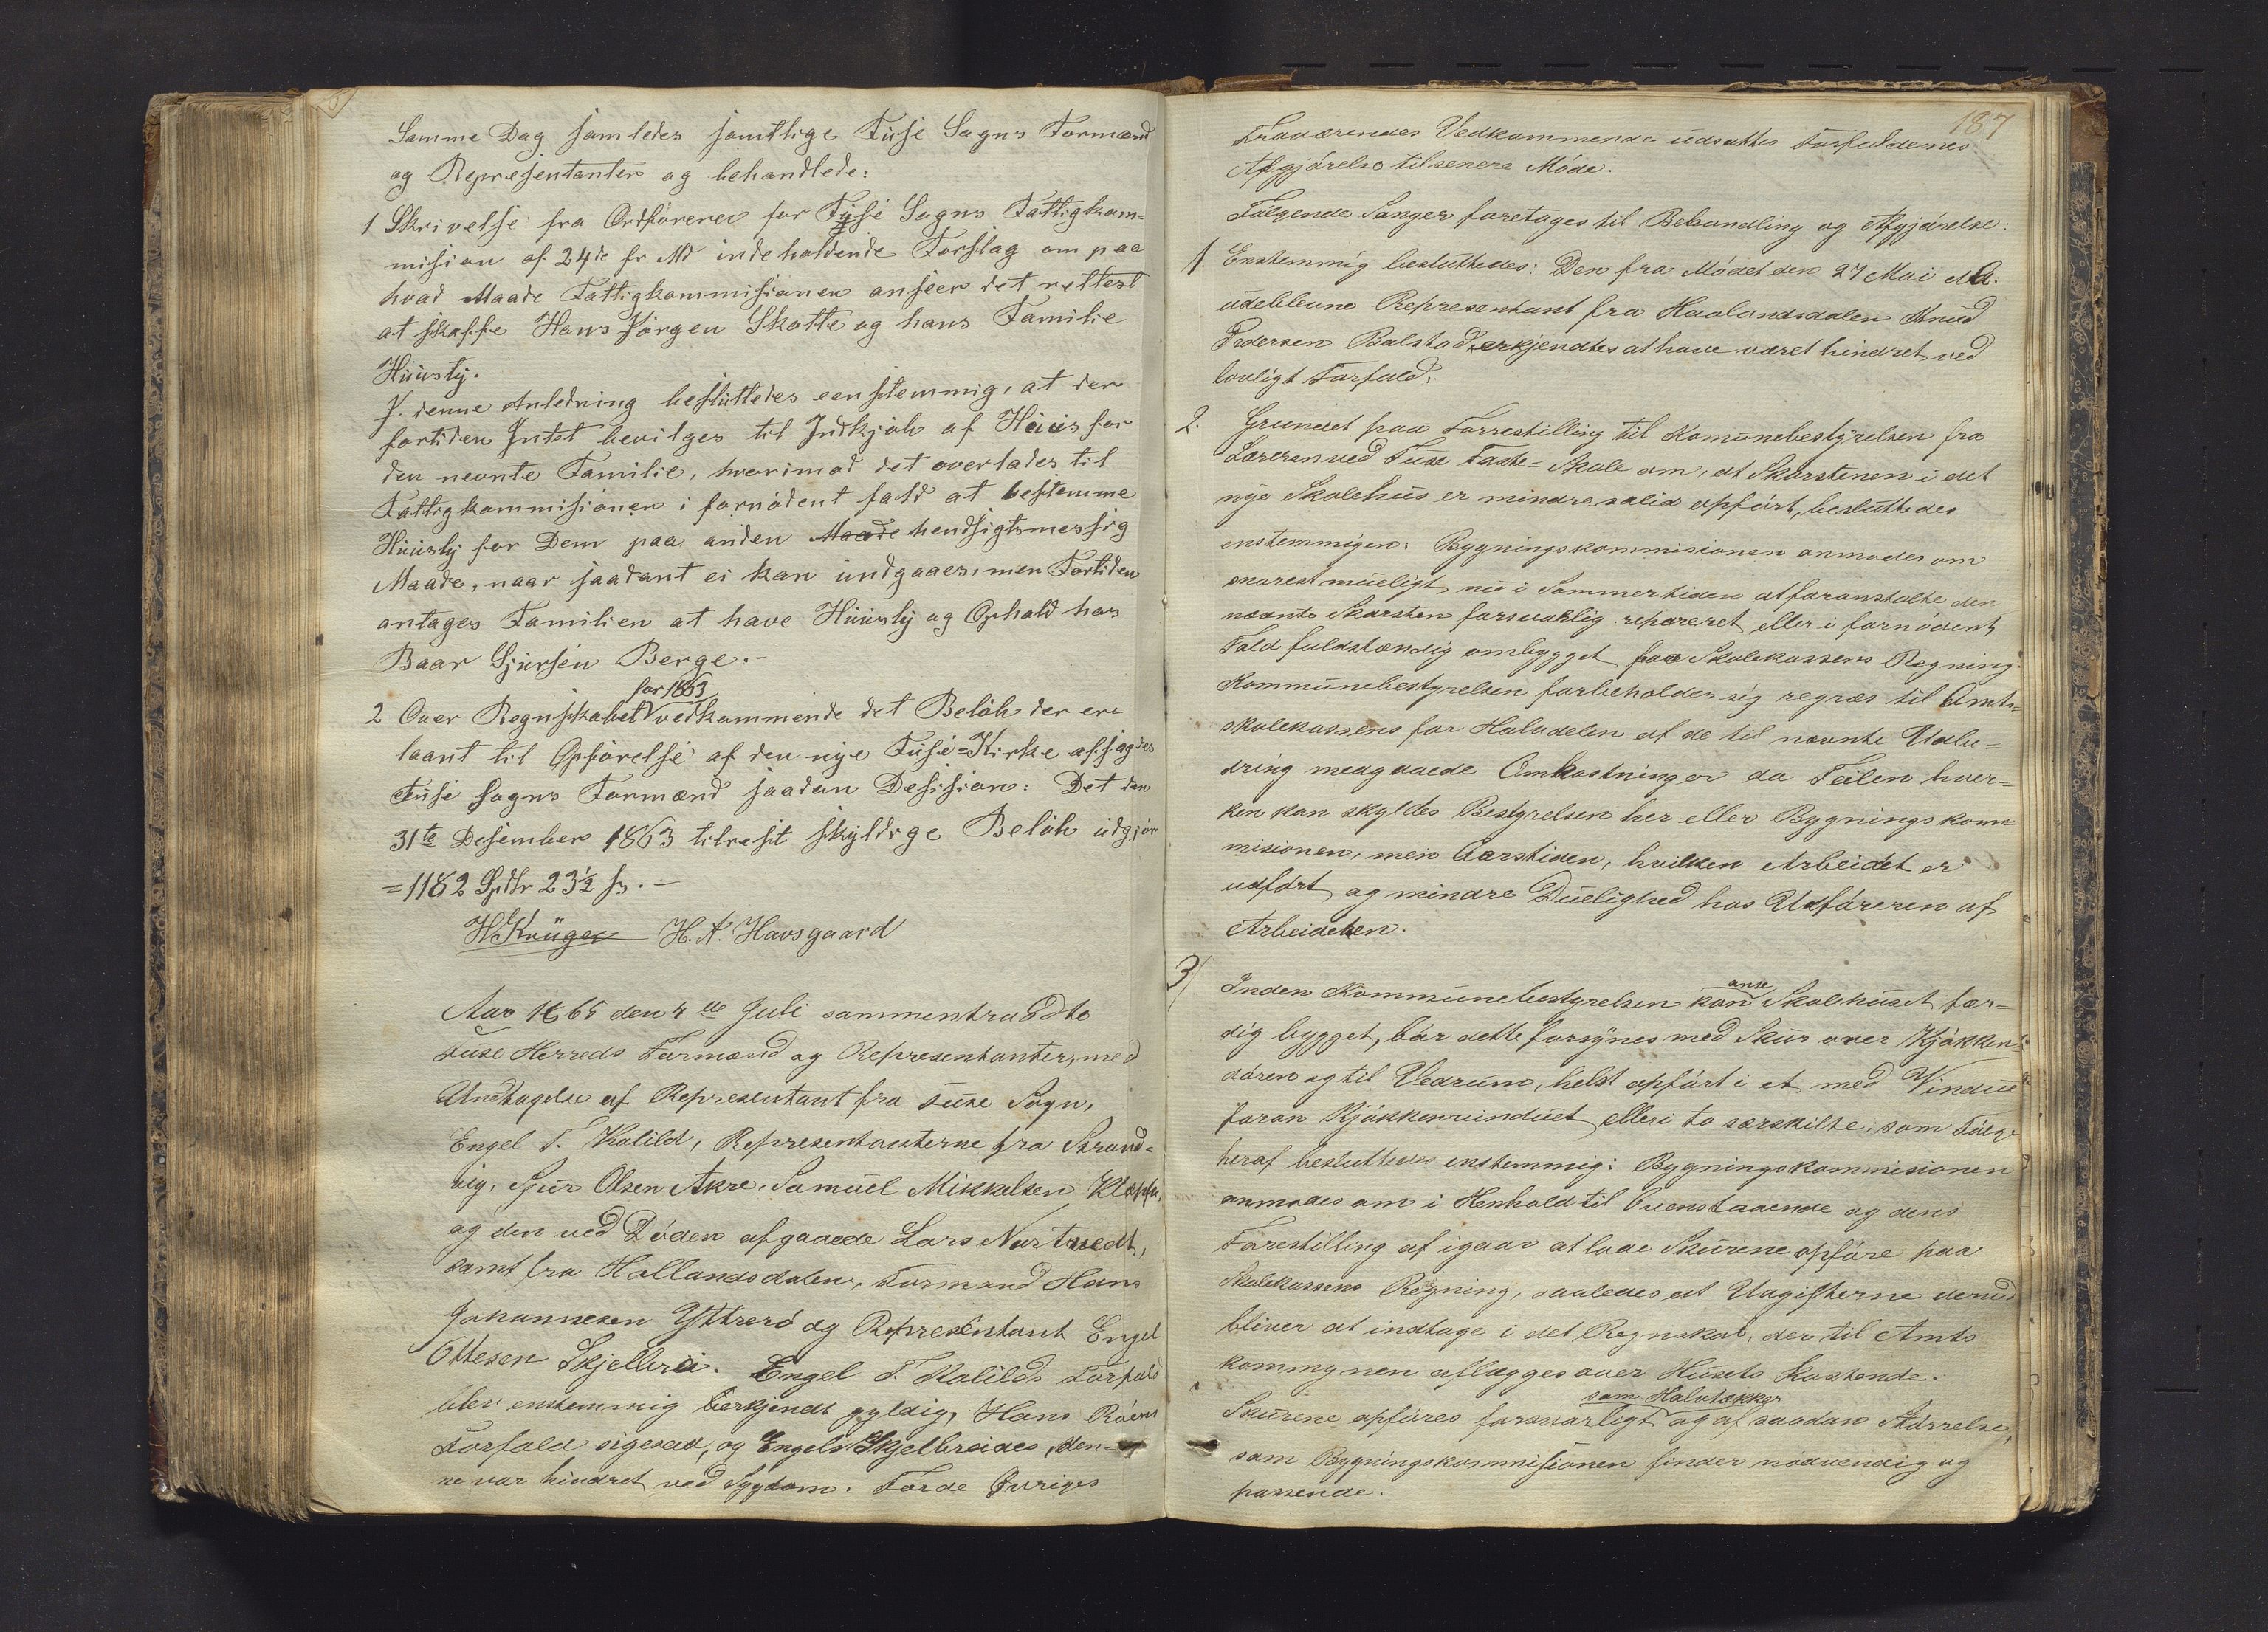 Samme Dag samledes samtlige Fuse Sogns Formænd
og Repræsentanter og behandlede:
1 Skrivelse fra Ordföreren for Fuse Sogns Fattigkom=
mision af 24de fr Md indeholdende Forslag om paa
hvad Maade Fattigkommisionen anseer det rettest
at skaffe Hans Jörgen Skotte og hans Familie
Huusly.
I denne Anledning besluttedes eenstemmig, at der
fortiden Intet bevilges til Indkjöb af Huus for
den nevnte Familie, hvorimod det overlades til
Fattigkommisionen i fornödent fald at bestemme
Huusly for Dem paa anden Maade hensigtsmessig
Maade, naar saadant ei kan undgaaes, men Fortiden
antages Familien at have Huusly og Ophold hos
Baar Sjursen Berge.-
for 1863
2 Over Regnskabet vedkommende det Belöb der er
laant til Opförelse af den nye Fuse=Kirke afsagdes
Fuse Sogns Formænd saadan Desision: Det den
31te Desember 1863 tilrest skyldige Belöb udgjör
=1182 Spdlr 23½ s.-
H Krüger H. A. Havsgaard
Aar 1865 den 4de Juli sammentraadte
Fuse Herreds Formænd og Representanter, med
Undtagelse af Representant fra Fuse Sogn,
Engel T. Kolild, Representanterne fra Strand=
vig, Sjur Olsen Akre, Samuel Mikkelsen
og den ved Döden afgaaede Lars Nortvedt,
samt fra Hollandsdalen, Formand Hans
Johannesen Yttrerö og Represéntant Engel
Ottesen Skjelbrei. Engel T. Kolilds Forfald
blev enstemmig erkjendt gyldig, Hans Röens
Forfald ligesaa, og Engel Skjelbreides, den=
ne var hindret ved Sygdom. For de Övriges
187
Fraværendes Vedkommende udsattes Forfaldenes
Afgjörelse til senere Möde.
Fölgende Sanger foretages til Behandling og Afgjörelse:
1. Enstemmig besluttedes: Den fra Mödet den 27 Mai d.A.
udeblevne Representant fra Haalandsdalen Knud
Pedersen Bolstad erkjendtes at have været hindret ved
lovligt Forfald.
2. Grundet paa Forrestilling til Komunebestyrelsen fra
Læreren ved Fuse Faste=Skole om, at Skorstenen i det
nye Skolehus er mindre solid opfört, besluttedes
enstemmigen: Bygningskommisionen anmodes om
snarest mueligt nu i Sommertiden at foranstalte den
nævnte Skorsten forsvarlig repareret eller i fornödent
Fald fuldstændig ombygget paa Skolekassens Regning.
Kommunebestyrelsen forbeholder sig regres til Amts=
skolekassens for Halvdelen af de til nævnte Udbe=
dring medgaaede Omkostninger da Feilen hver=
ken kan skyldes Bestyrelsen her eller Bygningskom=
misionen, men Aarstiden, hvilken Arbeidet er
udfört og mindre Duelighed hos Udföreren af
Arbeidet.
3/ Inden Kommunebestyrelsen kan anse Skolehuset fær=
dig bygget, bör dette forsynes med Skur over Kjökken=
dören og til Vedrum, helst opfört i et med Vindue
foran Kjökkenvinduet eller i to særskilte, som Fölge
heraf besluttedes enstemmig: Bygningskommisionen
anmodes om i Henhold til Ovenstaaende og dens
Forestilling af igaar at lade Skurene opföre paa
Skolekassens Regning, saaledes at Udgifterne derved
bliver at indtage i det Regnskab, der til Amts
kommynen aflægges over Husets Kostende.
som Halvtækker
Skurene opföres forsvarligt og af saadan Störrelse,
som Bygningskommisionen finder nödvendig og
passende.